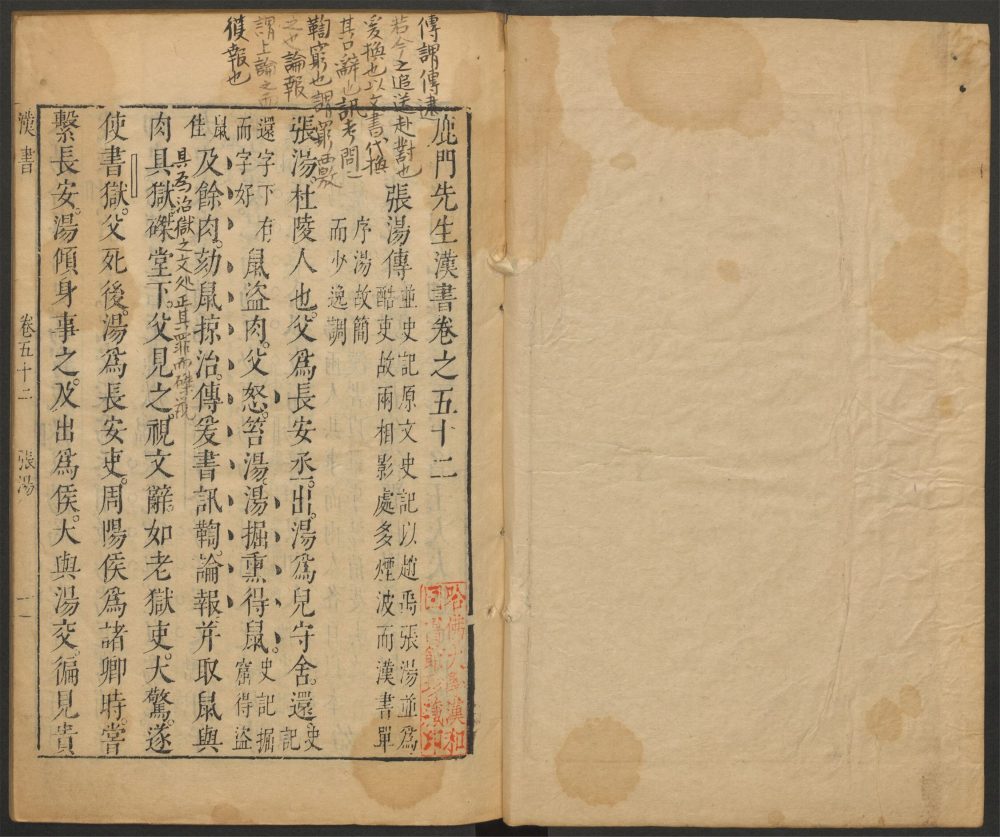 傳謂傳逮
若今之追送赴對也
爰換也以文書代換
其口辭也訊考問
鞫窮也謂窮覈
之也論報
謂上論之而
獲報也
鹿門先生漢書卷之五十二
張湯傳
並史記原文史記以趙禹張湯並爲
酷吏故兩相影處多煙波而漢書單
序湯故簡
而少逸調
張湯。杜陵人也。父爲長安丞。出。湯爲兒守舍。還。史記
還字下有
而字好
鼠盜肉。父怒。笞湯。湯掘熏得鼠。史記掘
窟得盜
鼠
佳
及餘肉。劾鼠掠治。傳爰書訊鞫論報。并取鼠與
具為治獄之文处正其罪而磔鼠
肉具獄磔堂下。父見之。視文辭如老獄吏。大驚。遂
使書獄。父死後。湯爲長安吏。周陽侯爲諸卿時。嘗
繫長安。湯傾身事之。及出爲侯。大與湯交。徧見貴
漢書
卷五十二
張湯
一
哈佛大學漢和
圖書館珍藏印